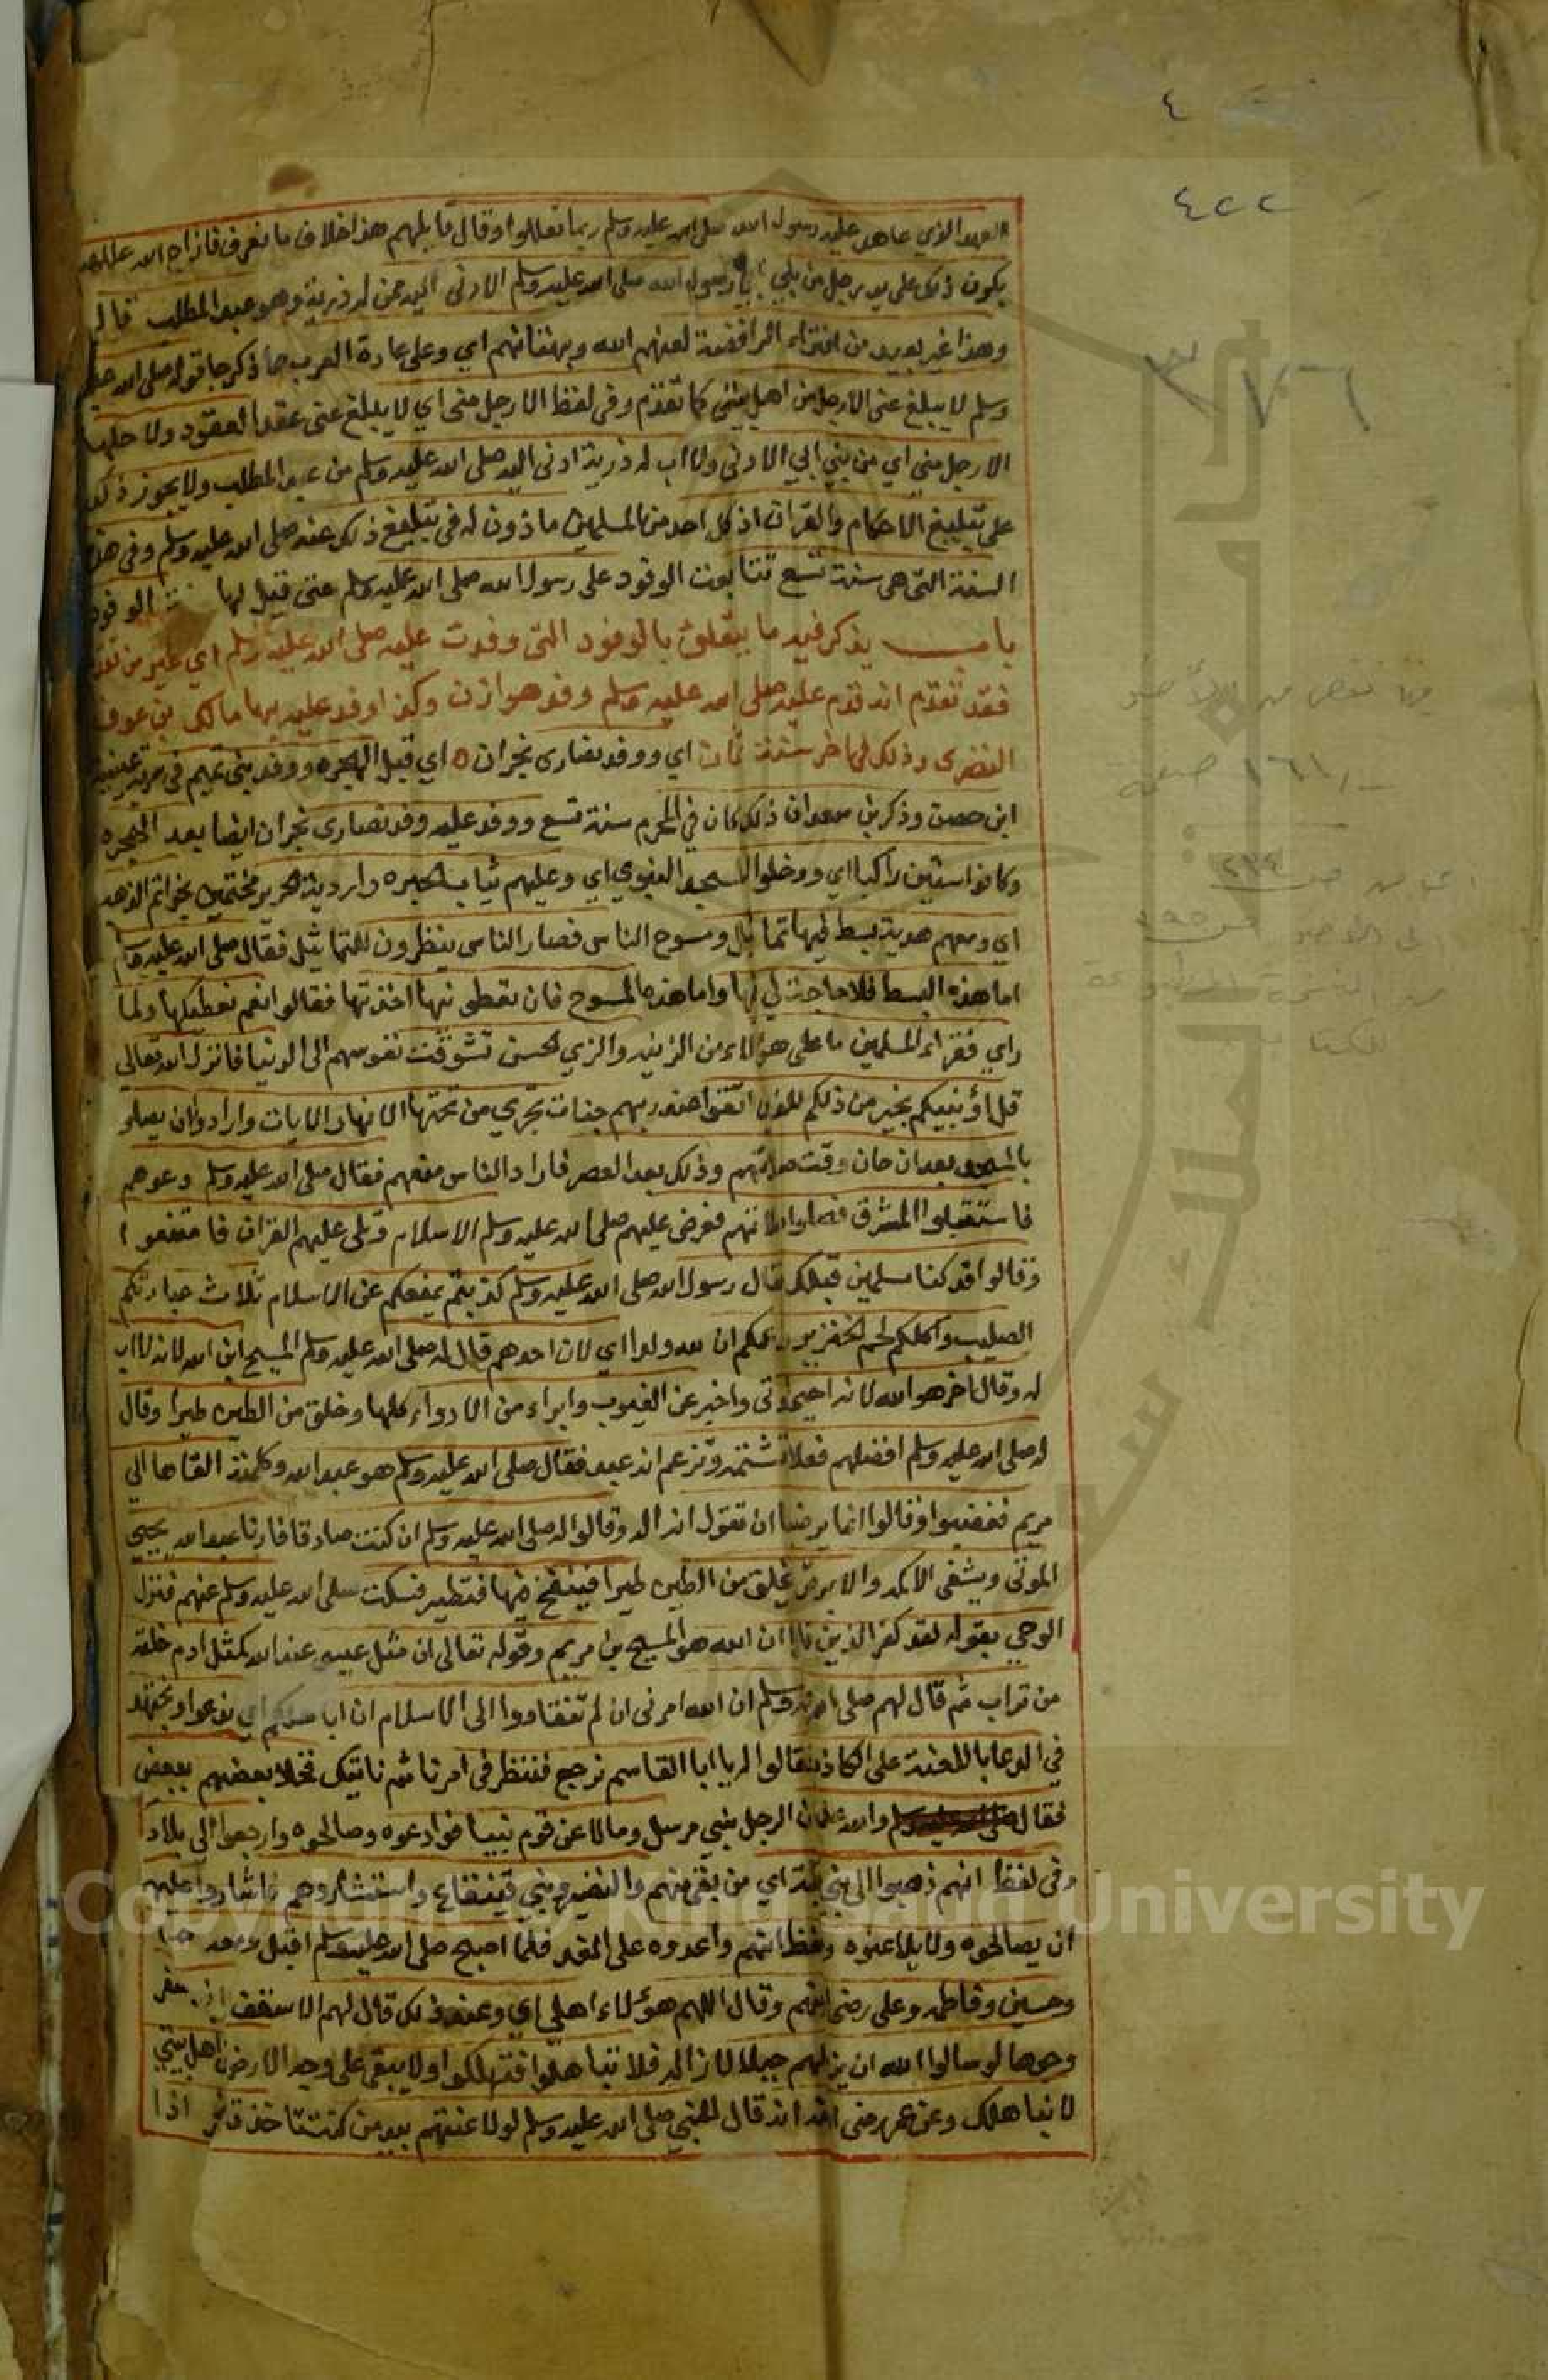 ٤
٤٢٢
العهد الذي عاهد عليه رسول الله صلى الله عليه وسلم ربما تعللوا وقال قايلهم هذا خلاف ما نعرف فازاح الله عللهم
يكون ذلك على يد رجل من بني ابي رسول الله صلى الله عليه وسلم الادنى اليه ممن له ذرية وهو عبد المطلب قال
وهذا غير بعيد من افتراء الرافضة لعنهم الله وبهتانهم اي وعلى عادة العرب بما ذكر جا قوله صلى الله عليه
وسلم لا يبلغ عني الا رجل من اهل بيتي كما تقدم وفي لفظ الا رجل مني اي لا يبلغ عني عقد العقود ولا حلها
الا رجل مني اي من بني ابي الادنى ولا اب له ذرية ادنى اليه صلى الله عليه وسلم من عبد المطلب ولا يجوز ذلك
على تبليغ الاحكام والقران اذ كل احد من المسلمين ماذون له في تبليغ ذلك عنه صلى الله عليه وسلم وفي هذه
السنة التي هي سنة تسع تتابعت الوفود على رسول الله صلى الله عليه وسلم حتى قيل لها سنة الوفود
باب يذكر فيه ما يتعلق بالوفود التي وفدت عليه صلى الله عليه وسلم اي غير من تقدم
فقد تقدم انه قدم عليه صلى الله عليه وسلم وفد هوازن وكذا وفد عليه بها مالك بن عوف
النضري وذلك في اخر سنة ثمان اي ووفد نصارى نجران اي قبل الهجره ووفد بني تميم في سرية عيينة
ابن حصن وذكر بن سعد ان ذلك كان في المحرم سنة تسع ووفد عليه وفد نصارى نجران ايضا بعد الهجره
وكانوا ستين راكبا اي ودخلوا المسجد النبوي اي وعليهم ثياب الحبره واردية الحرير مختمين بخواتم الذهب
اي ومعهم هدية بسط فيها تماثيل ومسوح الناس فصار الناس ينظرون للتماثيل فقال صلى الله عليه وسلم
اما هذه البسط فلا حاجة لي فيها واما هذه المسوح فان تعطونيها اخذتها فقالوا نعم نعطيكها ولما
راي فقراء المسلمين ما على هولاء من الزينه والزي الحسن تشوقت نفوسهم الى الدنيا فانزل الله تعالى
قل اؤنبيكم بخير من ذلكم للذين اتقوا عند ربهم جنات تجري من تحتها الانهار الايات وارادوا ان يصلوا
بالمسجد بعد ان حان وقت صلاتهم وذلك بعد العصر فاراد الناس منعهم فقال صلى الله عليه وسلم دعوهم
فاستقبلوا المشرق فصلوا صلاتهم فعرض عليهم صلى الله عليه وسلم الاسلام وتلى عليهم القران فامتنعوا
وقالوا قد كنا مسلمين قبلك فقال رسول الله صلى الله عليه وسلم كذبتم يمنعكم عن الاسلام ثلاث عبادتكم
الصليب واكلكم لحم الخنزير وزعمكم ان لله ولدا اي لان احدهم قال له صلى الله عليه وسلم المسيح ابن الله لانه لا اب
له وقال اخر هو الله لانه احيى الموتى واخبر عن الغيوب وابراء من الادواء كلها وخلق من الطين طيرا وقال
له صلى الله عليه وسلم افضلهم فعلام تشتمه وتزعم انه عبد فقال صلى الله عليه وسلم هو عبد الله وكلمته القاها الى
مريم فغضبوا وقالوا انما يرضينا ان تقول انه اله وقالوا له صلى الله عليه وسلم ان كنت صادقا فارنا عبد الله يحيي
الموتى ويشفي الاكمه والابرص ويخلق من الطين طيرا فينفخ فيها فتطير فسكت صلى الله عليه وسلم عنهم فنزل
الوحي بقوله لقد كفر الذين قالوا ان الله هو المسيح بن مريم وقوله تعالى ان مثل عيسى عند الله كمثل ادم خلقه
من تراب ثم قال لهم صلى الله عليه وسلم ان الله امرني ان لم تنقادوا الى الاسلام ان اباهلكم اي ندعوا ونجتهد
في الدعا باللعنة على الكاذب فقالوا له يا ابا القاسم نرجع فننظر في امرنا ثم ناتيك فخلا بعضهم ببعض
فقال والله علمتم ان الرجل نبي مرسل وما لاعن قوم نبيا فوادعوه وصالحوه وارجعوا الى بلادكم
وفي لفظ انهم ذهبوا الى بني قريظة اي من بقي منهم والنضير وبني قينقاع واستشاروهم فاشاروا عليهم
ان يصالحوه ولا يلاعنوه وفي لفظ انهم واعدوه على الغد فلما اصبح صلى الله عليه وسلم اقبل ومعه حسن
وحسين وفاطمه وعلى رضي الله عنهم وقال اللهم هؤلاء اهلي اي وعند ذلك قال لهم الاسقف اني لارى
وجوها لو سالوا الله ان يزيل لهم جبلا لازاله فلا تباهلوا فتهلكوا ولا يبقى على وجه الارض نصراني
لا نباهلك وعن عمر رضي الله عنه انه قال للنبي صلى الله عليه وسلم لو لاعنتهم بيد من كنت تاخذ قال اخذ